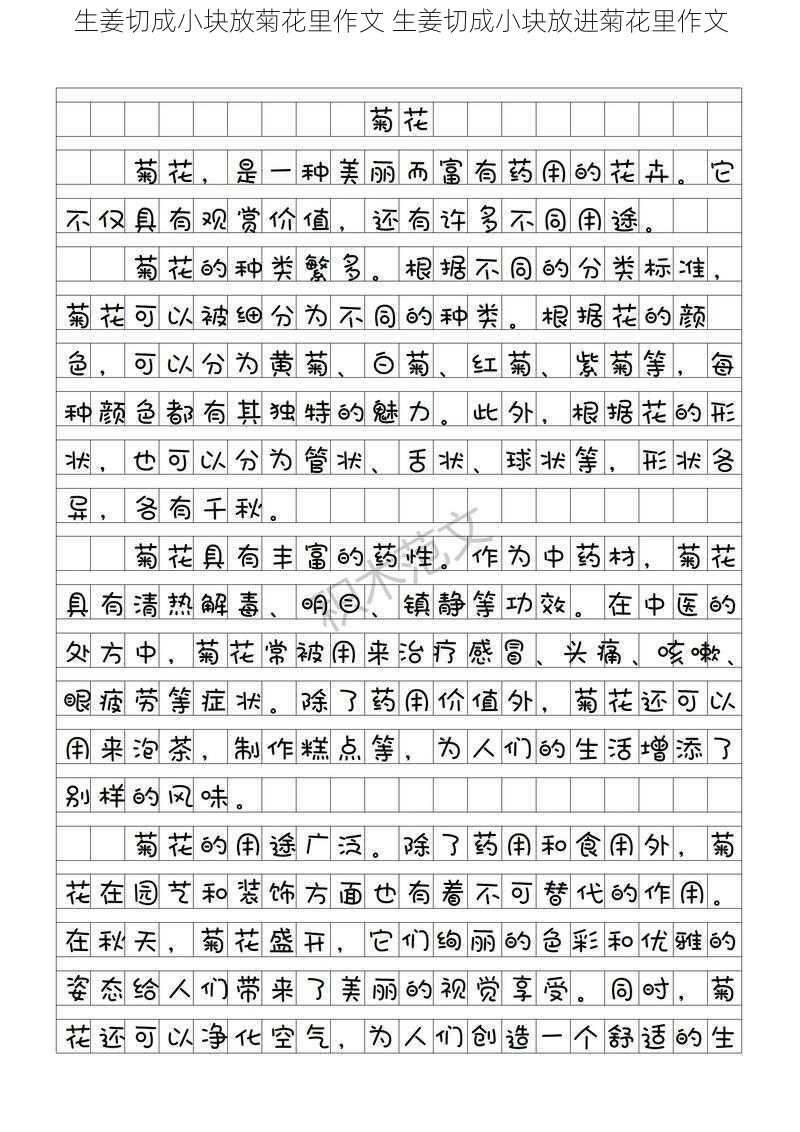 生姜切成小块放菊花里作文 生姜切成小块放进菊花里作文
菊花
菊花，是一种美丽而富有药用的花卉。它
不仅具有观赏价值，还有许多不同用途。
菊花的种类繁多。根据不同的分类标准，
菊花可以被细分为不同的种类。根据花的颜
色，可以分为黄菊、白菊、红菊、紫菊等，每
种颜色都有其独特的魅力。此外，根据花的形
状，也可以分为管状、舌状、球状等，形状各
异，各有千秋。
菊花具有丰富的药性。作为中药材，菊花
具有清热解毒、明目、镇静等功效。在中医的
处方中，菊花常被用来治疗感冒、头痛、咳嗽、
眼疲劳等症状。除了药用价值外，菊花还可以
用来泡茶，制作糕点等，为人们的生活增添了
别样的风味。
菊花的用途广泛。除了药用和食用外，菊
花在园艺和装饰方面也有着不可替代的作用。
在秋天，菊花盛开，它们绚丽的色彩和优雅的
姿态给人们带来了美丽的视觉享受。同时，菊
花还可以净化空气，为人们创造一个舒适的生
积木范文